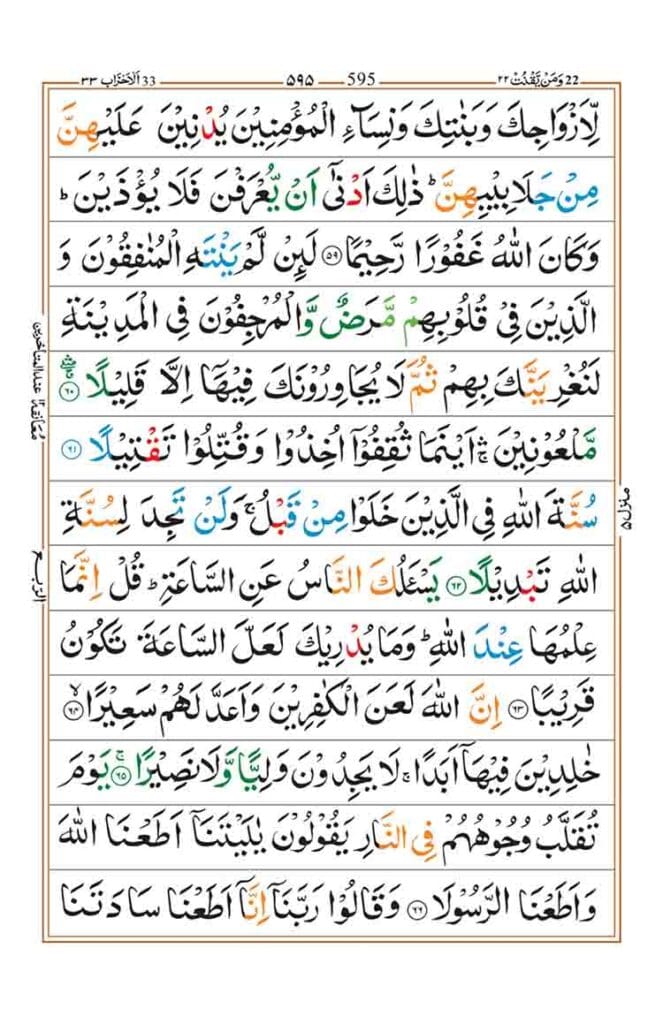 22 وَمَنْ يَّقْنُتْ ٢٢
595 ٥٩٥
33 اَلْاَحْزَاب ٣٣
لِّاَزْوَاجِكَ وَبَنٰتِكَ وَنِسَآءِ الْمُؤْمِنِيْنَ يُدْنِيْنَ عَلَيْهِنَّ
مِنْ جَلَابِيْبِهِنَّ ؕ ذٰلِكَ اَدْنٰٓى اَنْ يُّعْرَفْنَ فَلَا يُؤْذَيْنَ ؕ
وَكَانَ اللّٰهُ غَفُوْرًا رَّحِيْمًا ۝٥٩ لَئِنْ لَّمْ يَنْتَهِ الْمُنٰفِقُوْنَ وَ
الَّذِيْنَ فِيْ قُلُوْبِهِمْ مَّرَضٌ وَّالْمُرْجِفُوْنَ فِى الْمَدِيْنَةِ
لَنُغْرِيَنَّكَ بِهِمْ ثُمَّ لَا يُجَاوِرُوْنَكَ فِيْهَاۤ اِلَّا قَلِيْلًا ۝٦٠
مَّلْعُوْنِيْنَ ۛ اَيْنَمَا ثُقِفُوْۤا اُخِذُوْا وَقُتِّلُوْا تَقْتِيْلًا ۝٦١
سُنَّةَ اللّٰهِ فِى الَّذِيْنَ خَلَوْا مِنْ قَبْلُ ۚ وَلَنْ تَجِدَ لِسُنَّةِ
اللّٰهِ تَبْدِيْلًا ۝٦٢ يَسْـَٔلُكَ النَّاسُ عَنِ السَّاعَةِ ؕ قُلْ اِنَّمَا
عِلْمُهَا عِنْدَ اللّٰهِ ؕ وَمَا يُدْرِيْكَ لَعَلَّ السَّاعَةَ تَكُوْنُ
قَرِيْبًا ۝٦٣ اِنَّ اللّٰهَ لَعَنَ الْكٰفِرِيْنَ وَاَعَدَّ لَهُمْ سَعِيْرًا ۝٦٤
خٰلِدِيْنَ فِيْهَاۤ اَبَدًا ۚ لَا يَجِدُوْنَ وَلِيًّا وَّلَا نَصِيْرًا ۝٦٥ يَوْمَ
تُقَلَّبُ وُجُوْهُهُمْ فِى النَّارِ يَقُوْلُوْنَ يٰلَيْتَنَاۤ اَطَعْنَا اللّٰهَ
وَاَطَعْنَا الرَّسُوْلَا ۝٦٦ وَقَالُوْا رَبَّنَاۤ اِنَّاۤ اَطَعْنَا سَادَتَنَا
مُعَانَقَة ١٢ عند المتأخرين
الرّبع
منزل ٥